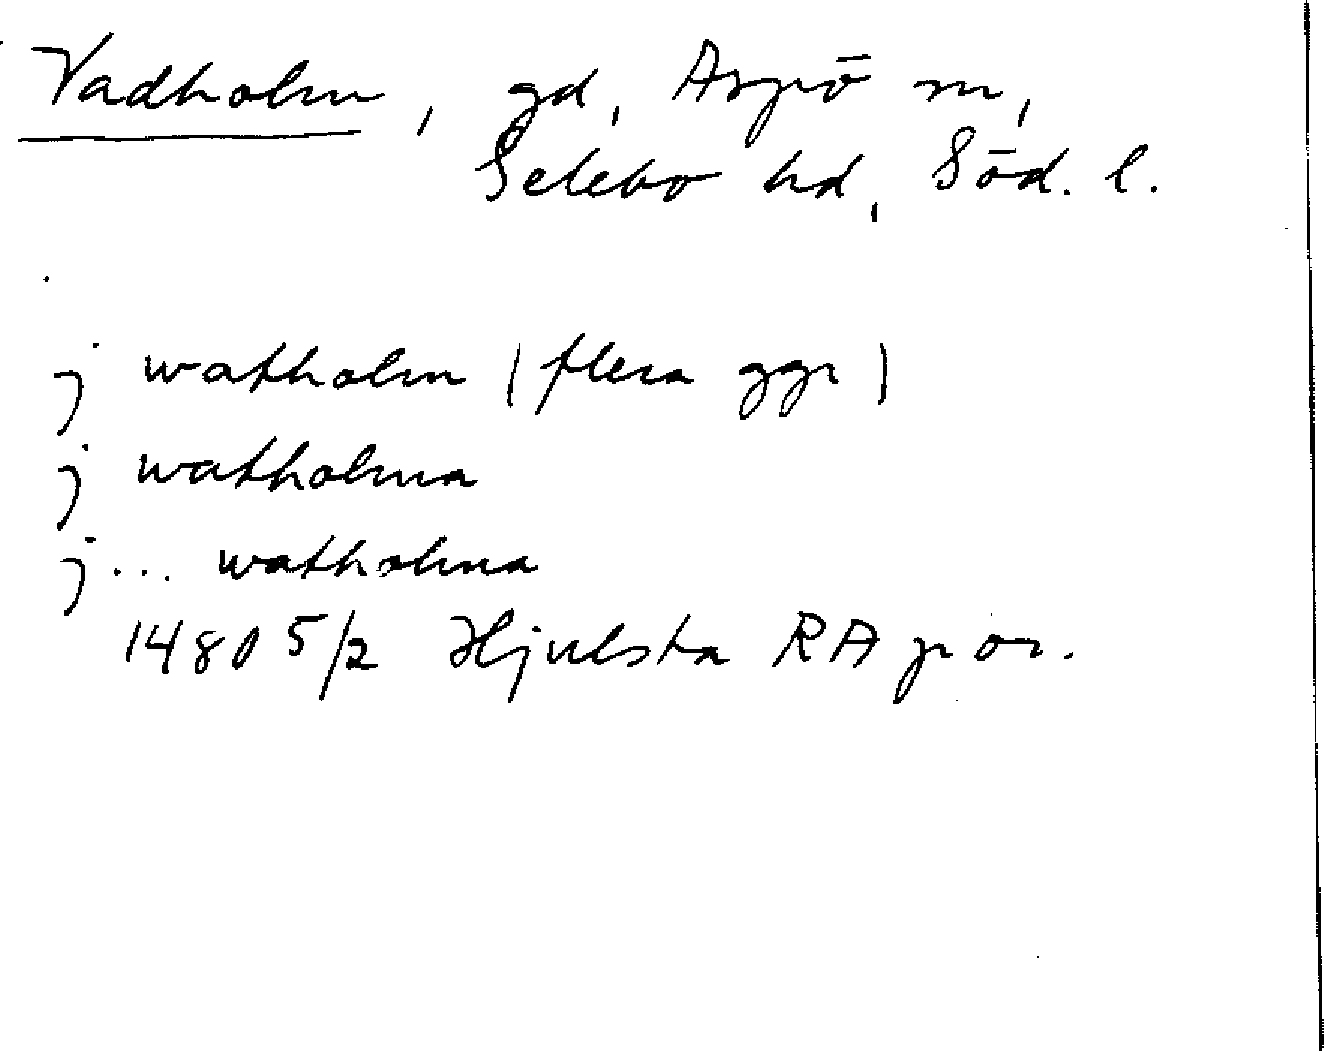 Vadholm, gd, Aspö sn,
Selebo hd, Söd. l.
j watholm (flera ggr)
j watholma
j... watholma
1480 5/2 Hjulsta RA p or.